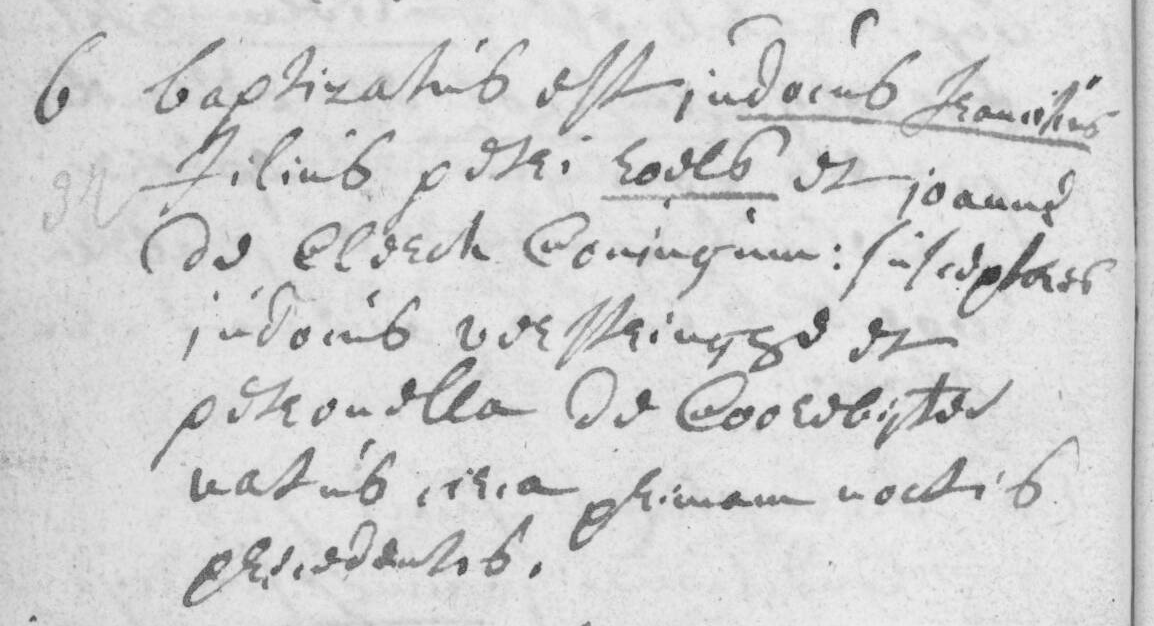 6 baptizatus est judocus franciscus
filius petri roels et joannæ
de Clerck Coningum: susceptores
judocus verstringhe et
petronella de Coorebijter
natus circa primam noctis
precedentis.